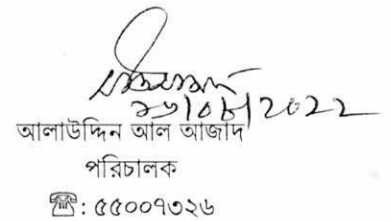 ১৬|০৮|2022
আলাউদ্দিন আল আজাদ
পরিচালক
☎: ৫৫০০৭৩২৬